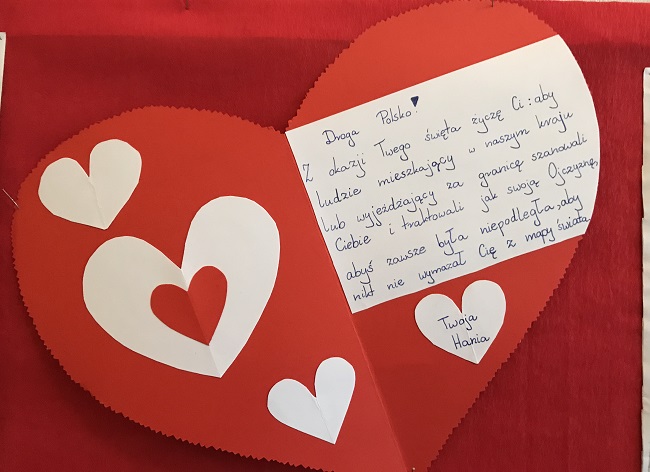 Droga Polsko!
Z okazji Twego święta życzę Ci: aby
ludzie mieszkający w naszym kraju
lub wyjeżdżający za granicę szanowali
Ciebie i traktowali jak swoją Ojczyznę,
abyś zawsze była niepodległa, aby
nikt nie wymazał Cię z mapy świata
Twoja
Hania